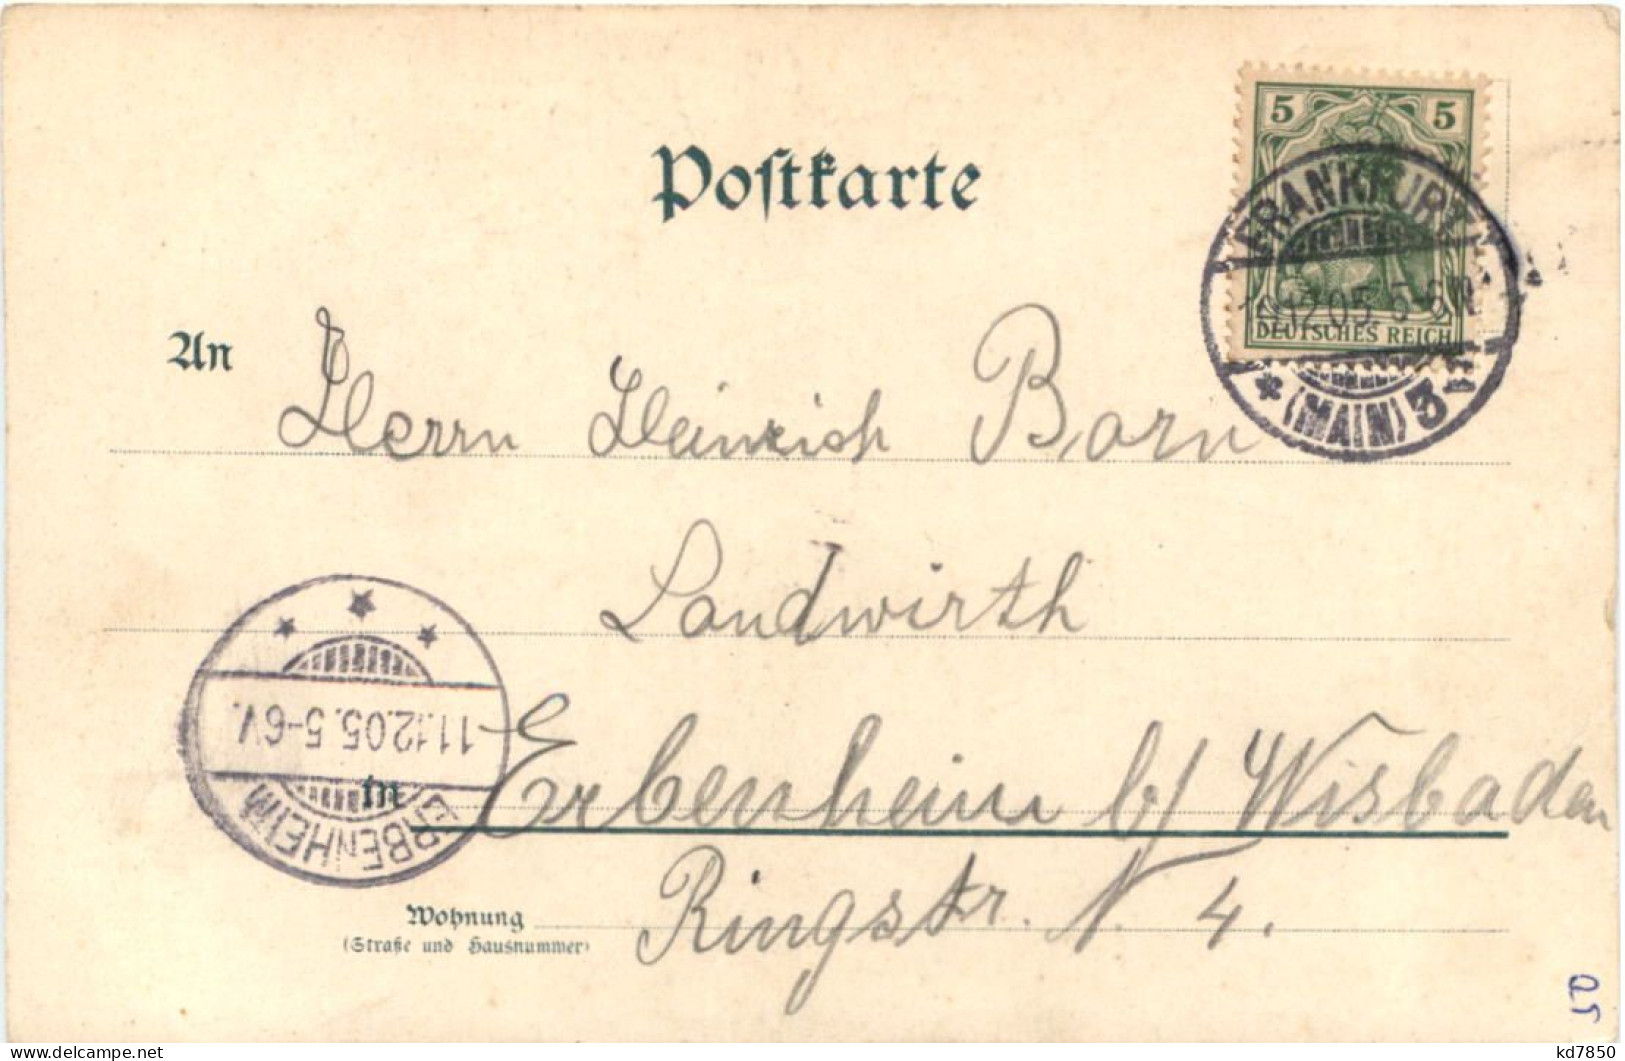 Postkarte
5 5
DEUTSCHES REICH
FRANKFURT
12.05. 5-6N
* (MAIN) 3
An Herrn Heinrich Born
Landwirth
in Erbenheim b/ Wisbaden
Wohnung Ringstr. N 4.
(Straße und Hausnummer)
11.12.05.5-6V.
ERBENHEIM
kd7850